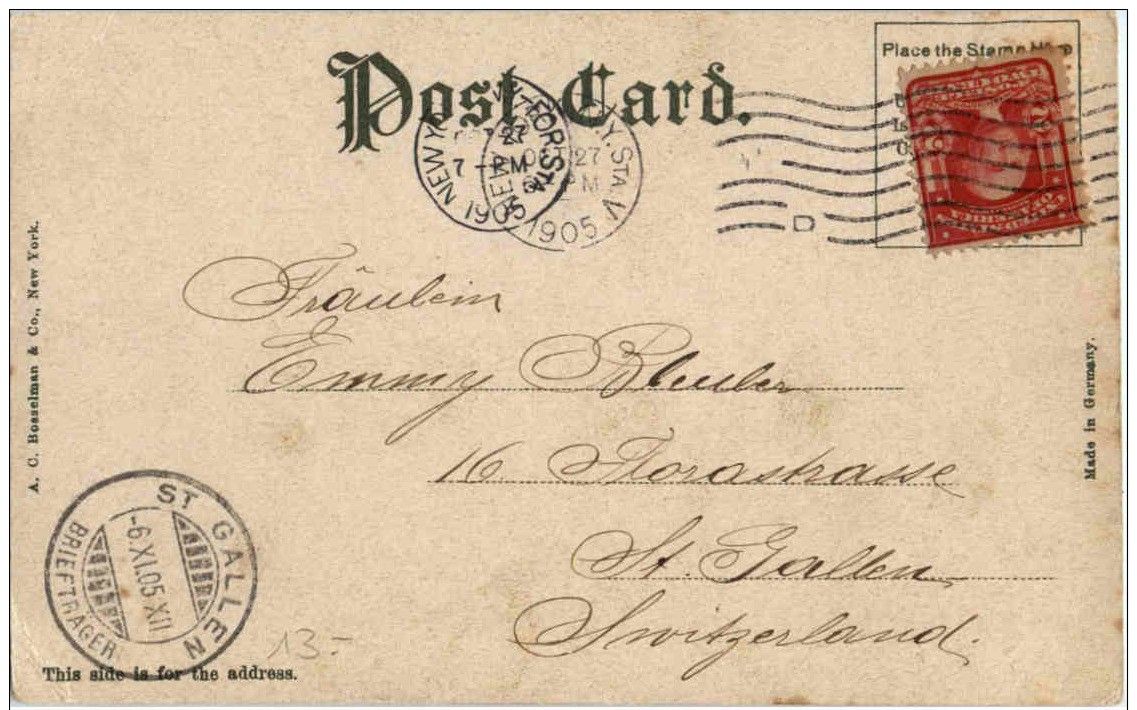 Post Card.
Place the Stamp Here
NEW YORK, N.Y. STA. V
OCT 27
7-PM
1905
OCT 27
PM
1905
D
Fräulein
Emmy Bleuler
16 Florastrasse
St. Gallen
Switzerland.
A. C. Bosselman & Co., New York.
Made in Germany.
ST GALLEN
-6 XI.05 XII
BRIEFTRÄGER
13.-
This side is for the address.